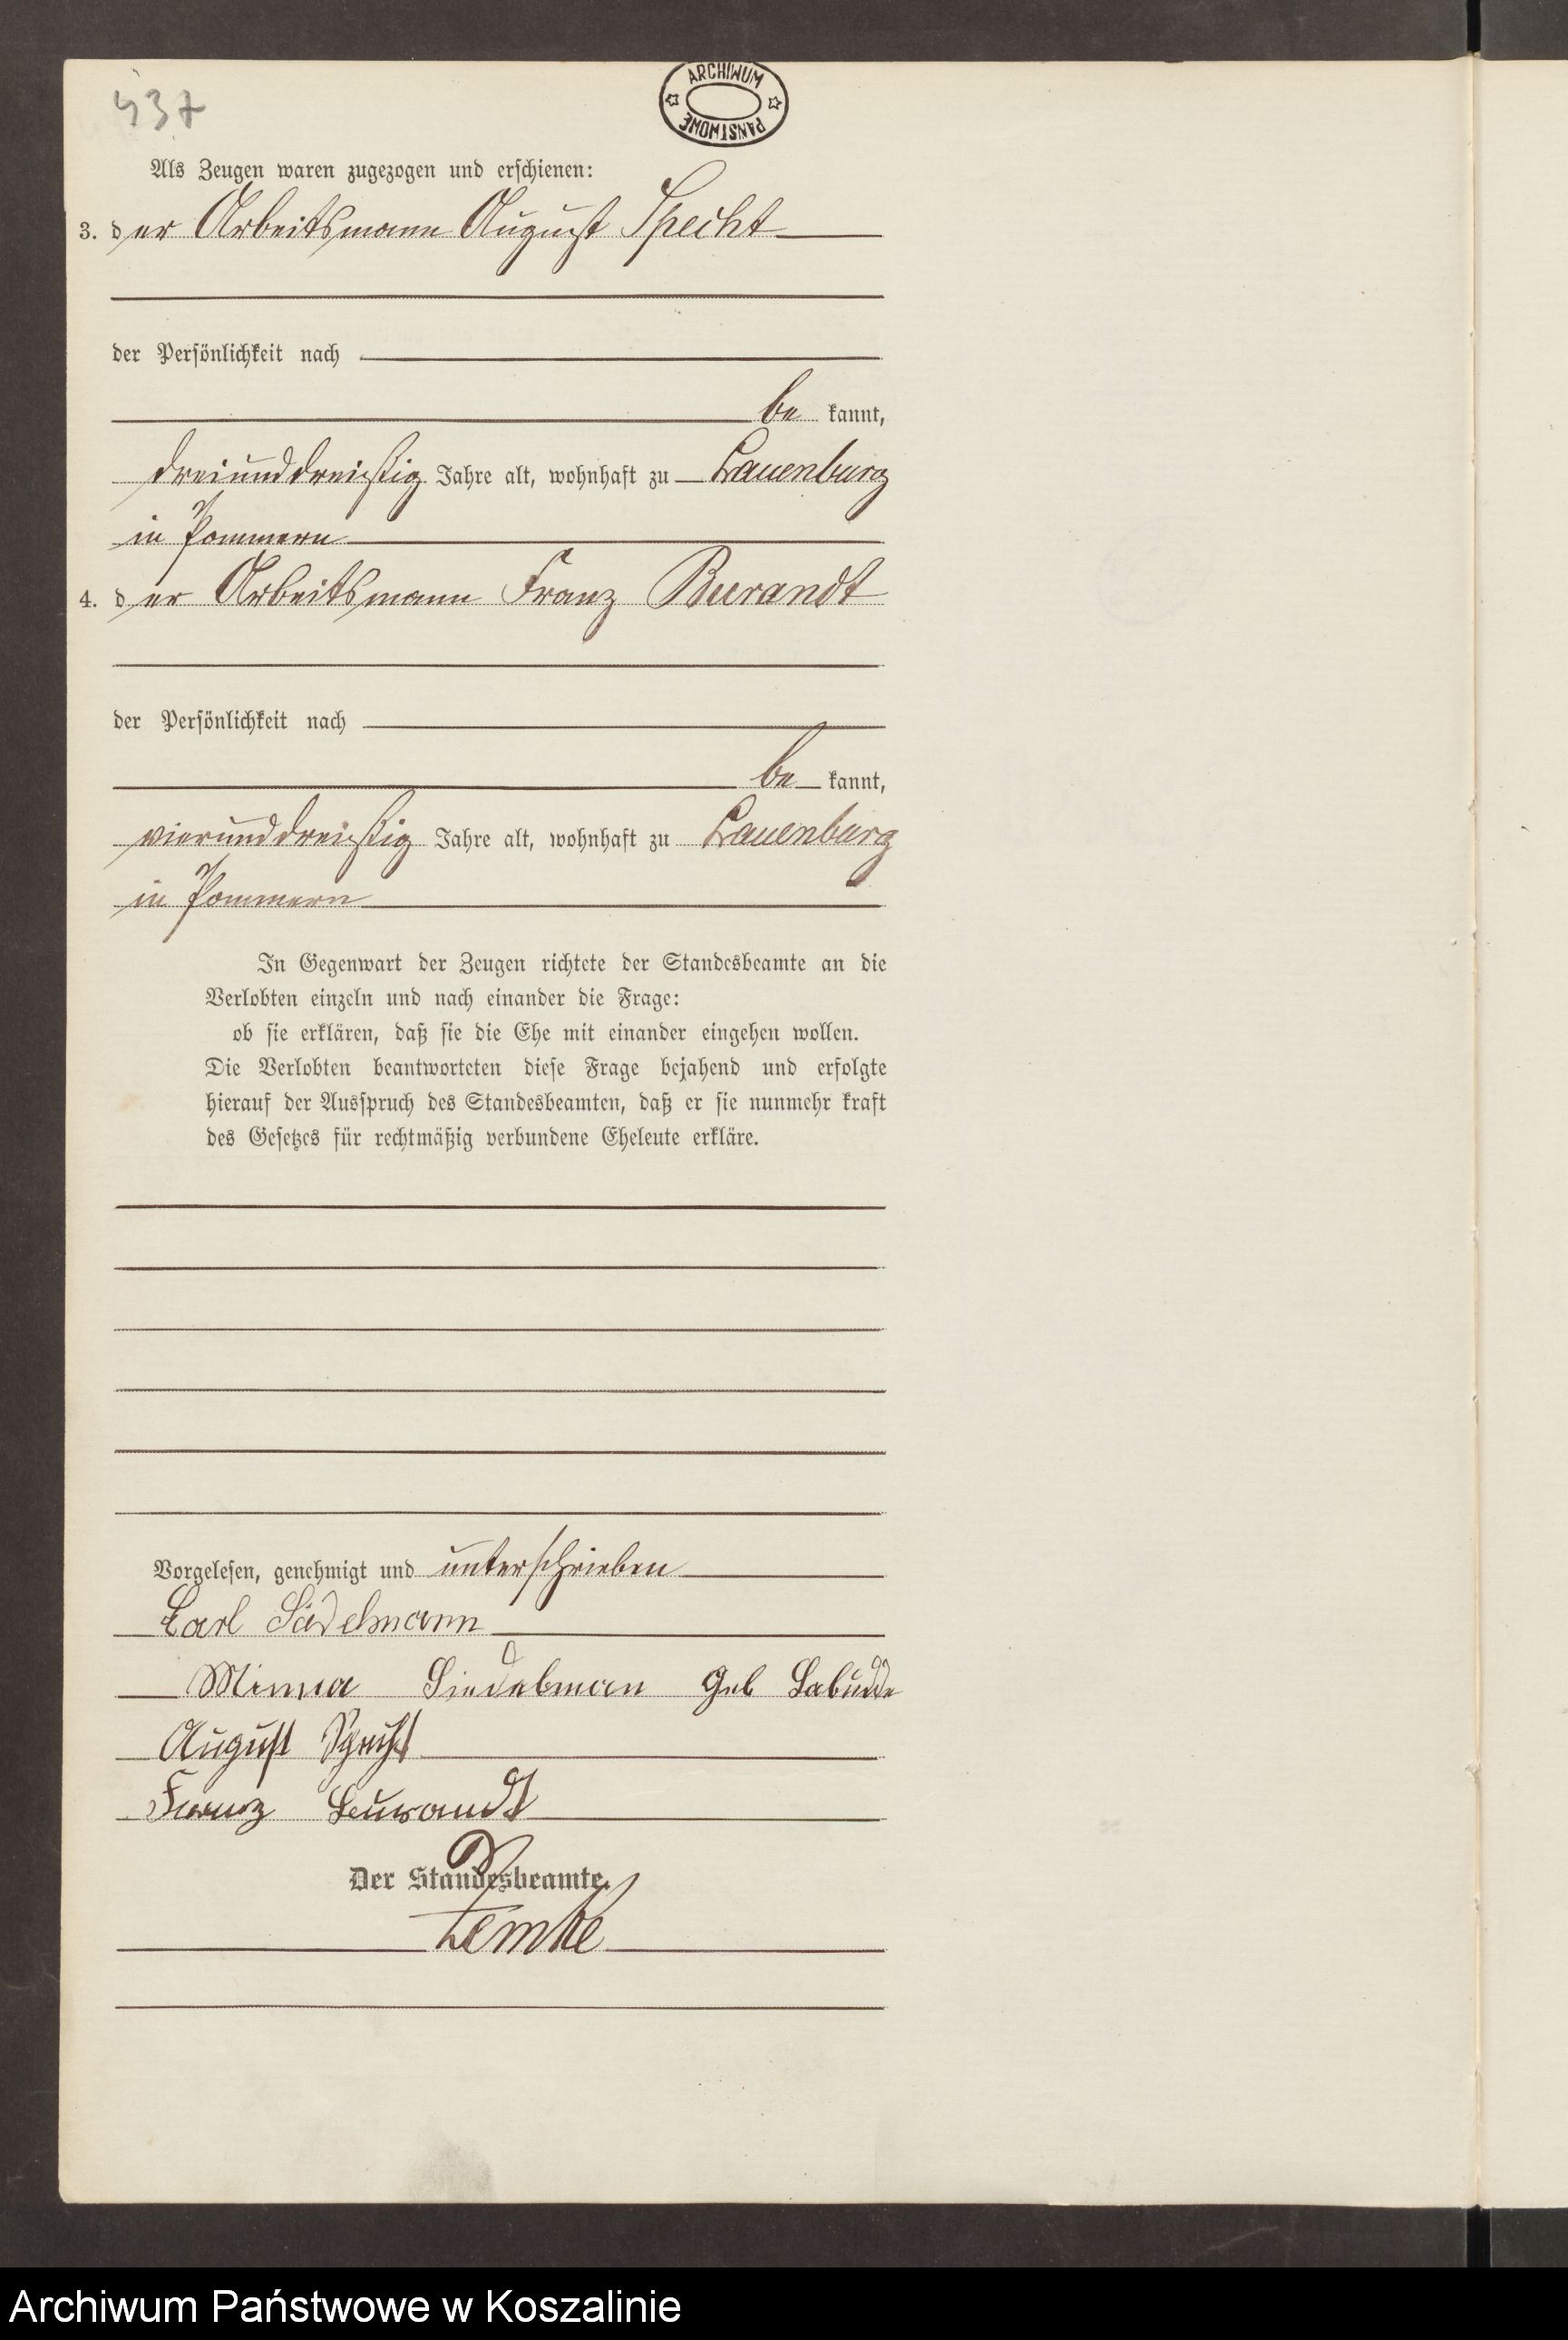 437
ARCHIWUM PAŃSTWOWE
Als Zeugen waren zugezogen und erschienen:
3. der Arbeitsmann August Specht
der Persönlichkeit nach
be kannt,
dreiunddreißig Jahre alt, wohnhaft zu Lauenburg
in Pommern
4. der Arbeitsmann Franz Burandt
der Persönlichkeit nach
be kannt,
vierunddreißig Jahre alt, wohnhaft zu Lauenburg
in Pommern
In Gegenwart der Zeugen richtete der Standesbeamte an die
Verlobten einzeln und nach einander die Frage:
ob sie erklären, daß sie die Ehe mit einander eingehen wollen.
Die Verlobten beantworteten diese Frage bejahend und erfolgte
hierauf der Ausspruch des Standesbeamten, daß er sie nunmehr kraft
des Gesetzes für rechtmäßig verbundene Eheleute erkläre.
Vorgelesen, genehmigt und unterschrieben
Carl
Minna Siedelman geb Labudde
August Specht
Franz Burandt
Der Standesbeamte.
Lemke
Archiwum Państwowe w Koszalinie